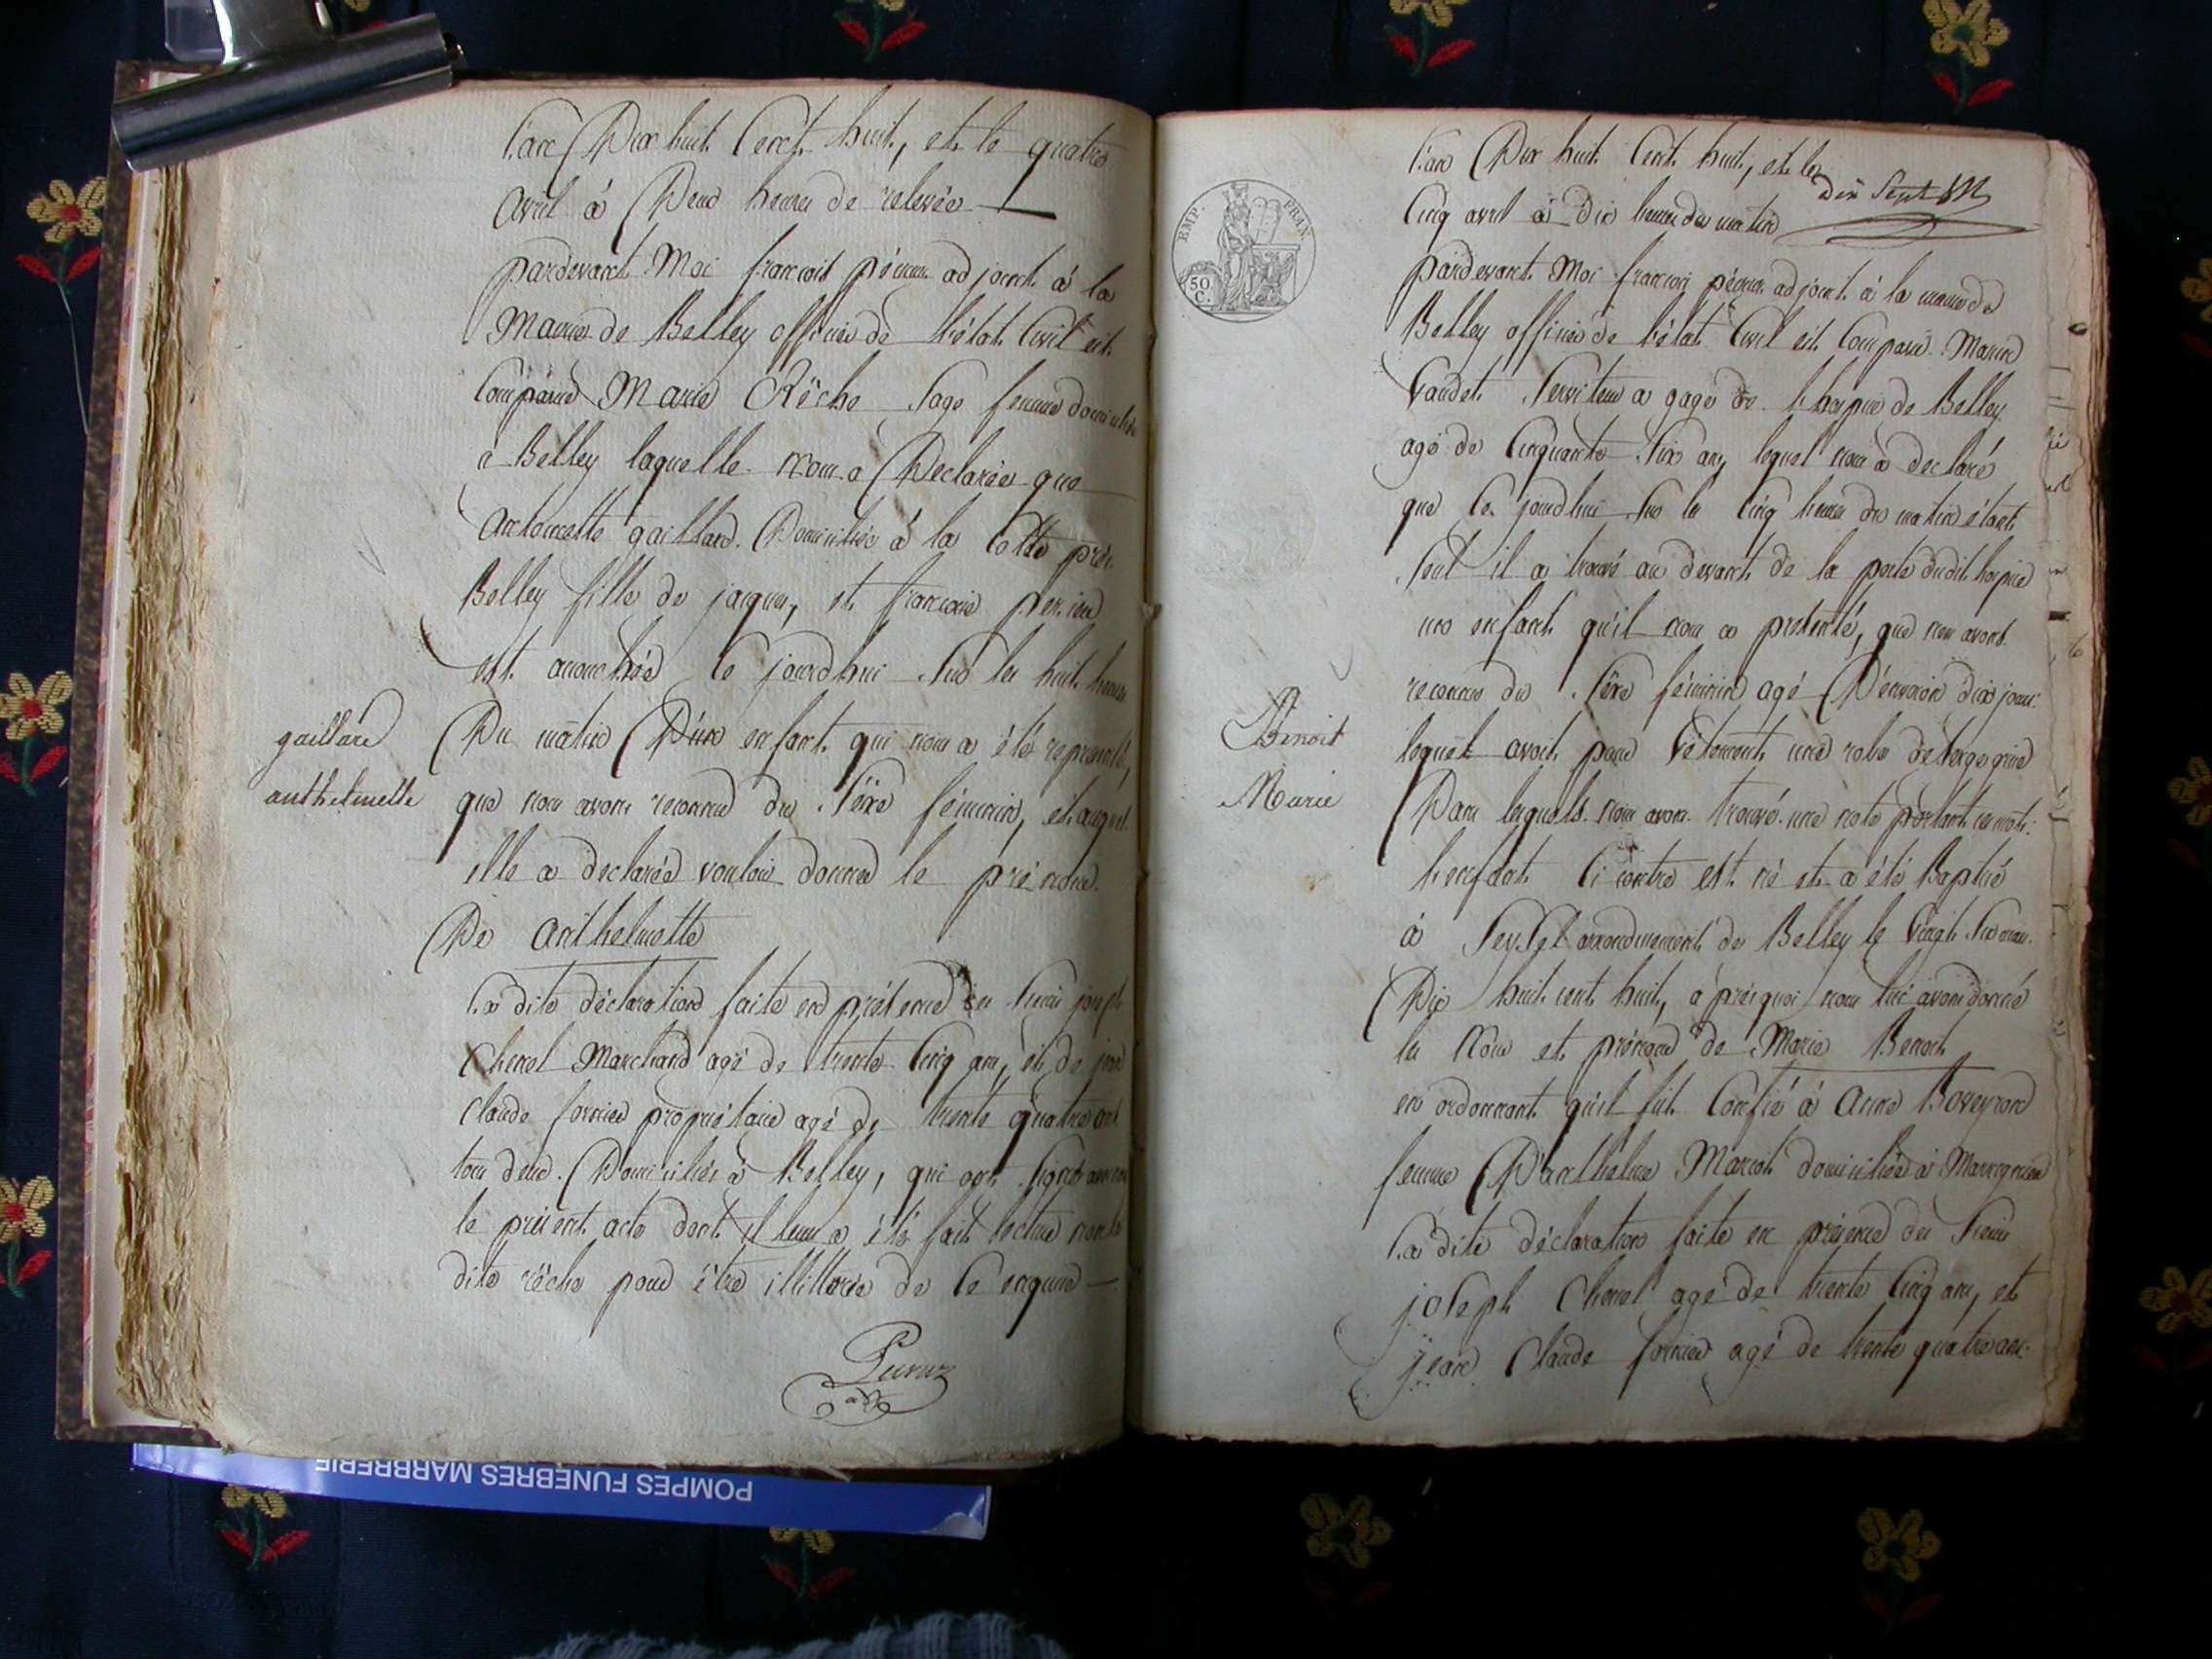 L'an Dix huit Cent huit, et le quatre
avril à Deux heures de relevée
pardevant Moi francois péruux adjoint à la
Mairie de Belley officier de l'état Civil est
Comparue Marie Rêche Sage femme domiciliée
à Belley laquelle nous a Declarée que
antoinette gaillard Domiciliée à la Cotte près
Belley fille de jacques, et francoise
est accouchée ce jourd'hui sur les huit heures
gaillard
anthelmette
Du matin D'un enfant qui nous a été représenté,
que nous avons reconnu du Sêxe féminin, et auquel
elle a declarée vouloir donner le prénom
De anthelmette
La dite déclaration faite en présence des sieurs joseph
Chenel Marchand agé de trente Cinq ans, et de jean
claude fornier propriétaire agé de trente quatre ans
tous deux Domiciliés à Belley, qui ont signés avec nous
le présent acte dont il leur a été fait lecture non la
dite rêche pour être illitterée de ce enquise
EMP. FRAN.
50 C.
L'an Dix huit Cent huit, et le
dix Sept
Cinq avril à Dix heures du matin
pardevant Moi francois adjoint à la mairie de
Belley officier de l'état Civil est Comparu Marin
Vaudet Serviteur a gage de l'hospice de Belley
agé de Cinquante Six ans, lequel nous à declaré
que Ce jourd'hui sur les Cinq heures du matin étant
seul il a trouvé au devant de la porte dudit hospice
un enfant qu'il nous a présenté, que nous avons
reconnu du Sêxe féminin agé D'environ dix jours
Benoit
Marie
lequel avoit pour Vêtement une robe de serge grise
Dans lequels nous avons trouvé une note portant ces mots:
l'enfant Ci contre est né et a été Baptisé
à Seyssel arrondissement de Belley le Vingt Six mars
Dix huit cent huit, à près quoi nous lui avons donné
les Nom et prénom de Marie Benoit
en ordonnant qu'il fut Confié à Anne Boveyron
femme D'anthelme Mariot domiciliée à Marignieu
La dite déclaration faite en présence des Sieurs
joseph Chenel agé de trente Cinq ans, et
jean Claude fornier agé de trente quatre ans
POMPES FUNEBRES MARBRERIE